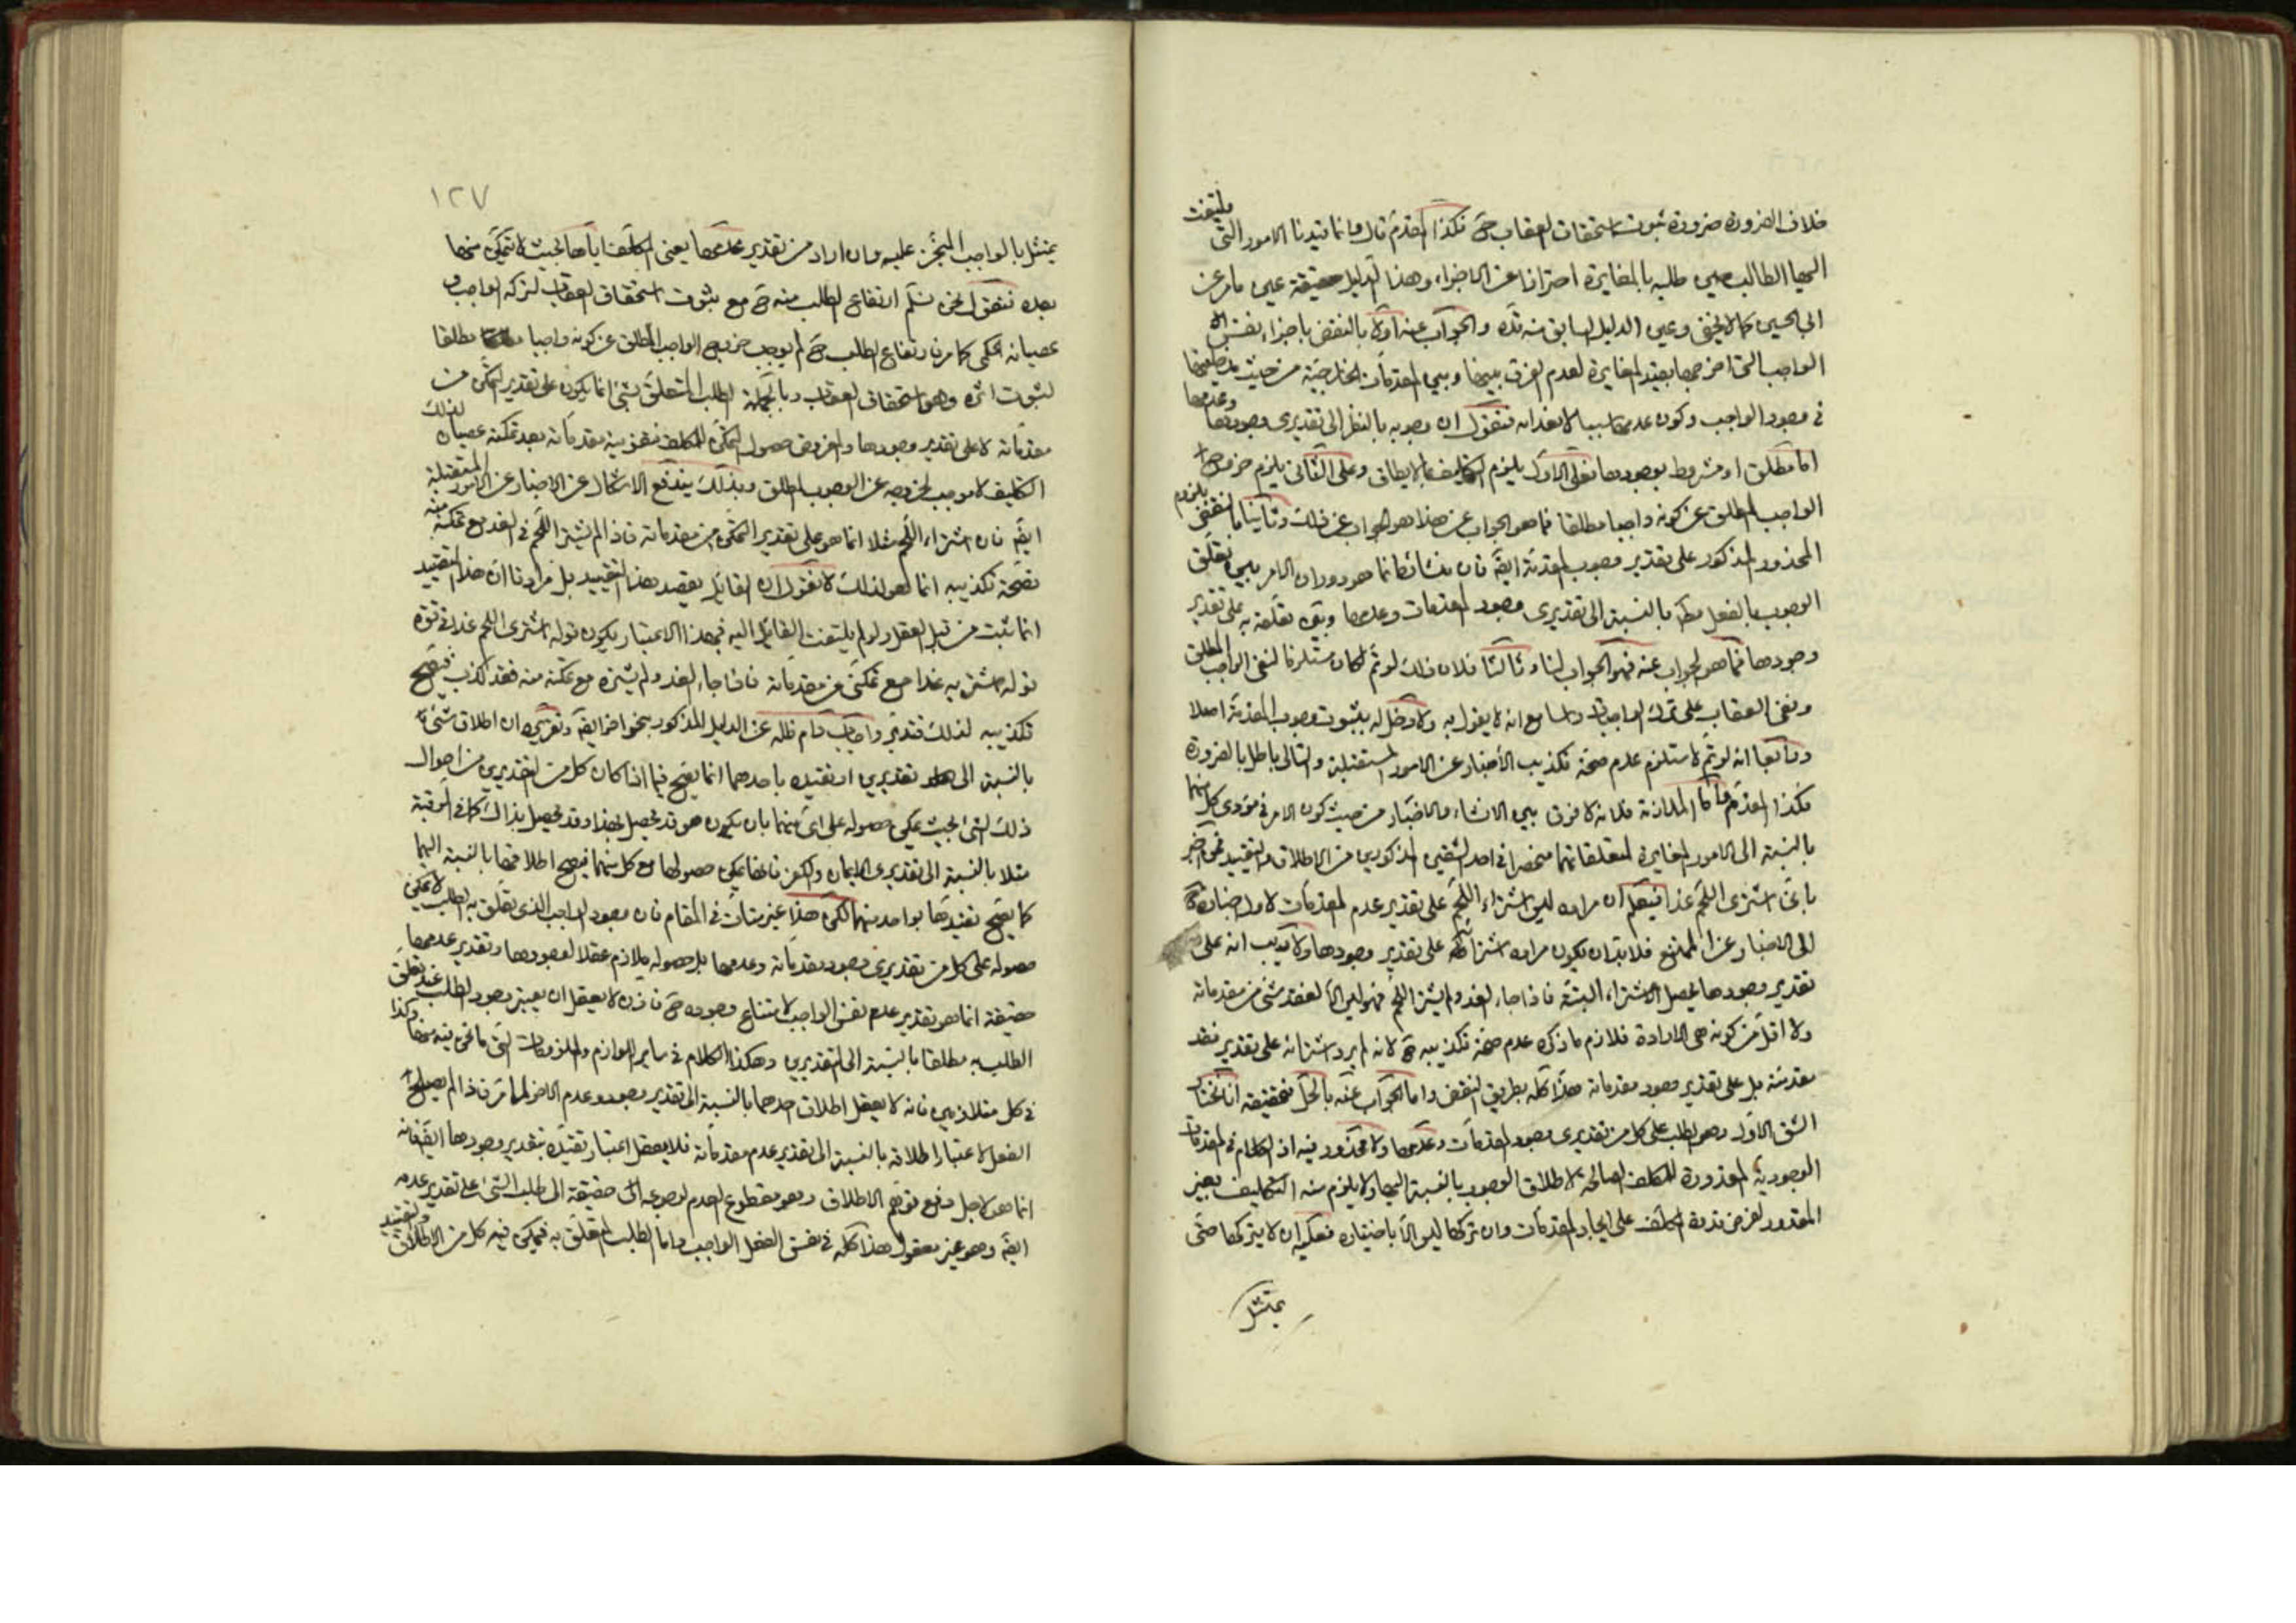 خلاف الضرورة ضرورة ثبوت استحقاق العقاب ح فكذا المقدم قال وانما قيدنا الامور التي يلتفت
اليها الطالب حين طلبه بالمغايرة احترازا عن الاجزاء وهذا الدليل حقيقة عين ما مر عن
ابي الحسين كما لا يخفى وعين الدليل السابق منه قده والجواب عنه اولا بالنقض باجزاء نفس
الواجب التي اخرجها بقيد المغايرة لعدم الفرق بينها وبين المقدمات الخارجية من حيث مدخليتها
في وجود الواجب وكون عدمها سببا لانعدامه فنقول ان وجوبه بالنظر الى تقديري وجودها وعدمها
اما مطلق او مشروط بوجودها فعلى الاول يلزم التكليف بما لا يطاق وعلى الثاني يلزم خروج
الواجب المطلق عن كونه واجبا مطلقا فما هو الجواب عن هذا فهو الجواب عن ذلك وثانيا بالنقض بلزوم
المحذور المذكور على تقدير وجوب المقدمة ايضا فان منشائه انما هو دوران الامر بين تعلق
الوجوب بالفعل مط بالنسبة الى تقديري وجود المقدمات وعدمها وبين تعلقه به على تقدير
وجودها فما هو الجواب عنه فهو الجواب لنا وثالثا فلان ذلك لو تم لكان مستلزما لنفي الواجب المطلق
ونفي العقاب على ترك الواجبات راسا مع انه لا يقول به ولا دخل له بثبوت وجوب المقدمة اصلا
ورابعا انه لو تم لاستلزم عدم صحة تكذيب الاخبار عن الامور المستقبلة والتالي باطل بالضرورة
فكذا المقدم واما الملازمة فلانه لا فرق بين الانشاء والاخبار من حيث كون الامر في مؤدى كل منهما
بالنسبة الى الامور المغايرة لمتعلقاتهما منحصرا في احد الشقين المذكورين من الاطلاق والتقييد فمن اخبر
باني اشتري اللحم غدا فيعلم ان مراده ليس اشتراء اللحم على تقدير عدم المقدمات لاول اخباره ح
الى الاخبار عن الممتنع فلا بد ان يكون مراده اشترائه على تقدير وجودها ولا ريب انه على
تقدير وجودها يحصل الاشتراء البتة فاذا جاء الغد ولم يشتر اللحم فهو ليس الا لفقد شيء من مقدماته
ولا اقل من كونه هي الارادة فلازم ما ذكره عدم صحة تكذيبه ح لانه لم يرد اشترائه على تقدير فقد
مقدمته بل على تقدير وجود مقدماته هذا كله بطريق النقض واما الجواب عنه بالحل فتحقيقه انا نختار
الشق الاول وهو الطلب على كل من تقديري وجود المقدمات وعدمها ولا محذور فيه اذ الكلام في المقدمات
الوجودية المقدورة للمكلف الصالحة لاطلاق الوجوب بالنسبة اليها ولا يلزم منه التكليف بغير
المقدور لفرض قدرة المكلف على ايجاد المقدمات وان تركها ليس الا باختياره فيمكنه ان لا يتركها حتى
يمتثل
١٢٧
يمتثل بالواجب المنجز عليه وان اراد من تقدير عدمها يعني المكلف اياها بحيث لا يتمكن منها
بعده فنقول نحن نسلم ارتفاع الطلب منه ح مع ثبوت استحقاق العقاب لتركه الواجب و
عصيانه الحكمي كما مر فارتفاع الطلب ح لم يوجب خروج الواجب المطلق عن كونه واجبا مطلقا
لثبوت اثره وهو استحقاق العقاب وبالجملة الطلب المتعلق بشيء انما يكون على تقدير التمكن من
مقدماته لا على تقدير وجودها والمفروض حصول التمكن للمكلف فتفويته مقدماته بعد تمكنه عصيان لذلك
التكليف لا موجب لخروجه عن الوجوب المطلق وبذلك يندفع الاشكال عن الاخبار عن الامور المستقبلة
ايضا فان اشتراء اللحم مثلا انما هو على تقدير التمكن من مقدماته فاذا لم يشتر اللحم في الغد مع تمكنه منه
فصحة تكذيبه انما هو لذلك لا نقول ان القائل يقصد هذا التقييد بل مرادنا ان هذا التقييد
انما ثبت من قبل العقل ولو لم يلتفت القائل اليه فبهذا الاعتبار يكون قوله اشتري اللحم غدا في قوة
قوله اشتريه غدا مع تمكني من مقدماته فاذا جاء الغد ولم يشتره مع تمكنه منه فقد كذب فيصح
تكذيبه لذلك فتدبر واجاب دام ظله عن الدليل المذكور بنحو اخر ايضا وتقريره ان اطلاق شيء
بالنسبة الى تقديرين او تقييده باحدهما انما يصح فيما اذا كان كل من التقديرين من احوال
ذلك الشيء بحيث يمكن حصوله على اي منهما بان يكون هو قد يحصل بهذا وقد يحصل بذاك كما في الرقبة
مثلا بالنسبة الى تقديري الايمان والكفر فانها يمكن حصولها مع كل منهما فيصح اطلاقها بالنسبة اليهما
كما يصح تقييدها بواحد منهما لكن هذا غير متات في المقام فان وجود الواجب الذي تعلق به الطلب لا يمكن
حصوله على كل من تقديري وجود مقدماته وعدمها بل حصوله ملازم عقلا لوجودها وتقدير عدمها
حقيقة انما هو تقدير عدم نفس الواجب لامتناع وجوده ح فاذن لا يعقل ان يعتبر وجود الطلب عند تعلق
الطلب به مطلقا بالنسبة الى التقديرين وهكذا الكلام في ساير اللوازم والملزومات التي ما نحن فيه منها وكذا
في كل متلازمين فانه لا يعقل اطلاق احدهما بالنسبة الى تقدير وجود وعدم الاخر لما مر فاذا لم يصلح
الفعل لاعتبار اطلاقه بالنسبة الى تقدير عدم مقدماته فلا يعقل اعتبار تقييده بتقدير وجودها ايضا فانه
انما هو لاجل دفع توهم الاطلاق وهو مقطوع العدم لرجوعه الى حقيقة الى طلب الشيء على تقدير عدمه
ايضا وهو غير معقول هذا كله في نفس الفعل الواجب واما الطلب المتعلق به فيمكن فيه كل من الاطلاق والتقييد